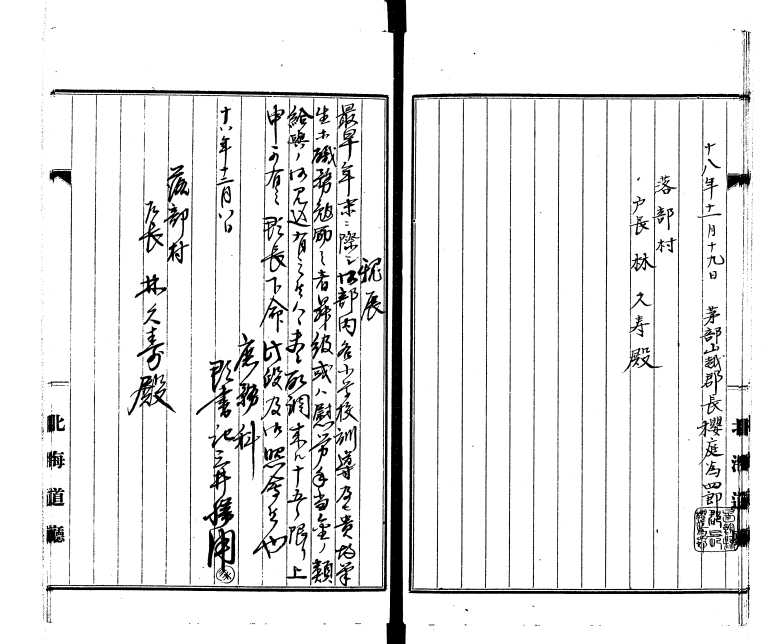 十八年十一月十九日　茅部山越郡長櫻庭為四郎
落部村
戸長　林久寿殿
親展
最早年末ニ際シ御部内各小学校訓導及貴場筆
生等職務勉励之者昇級或ハ慰労手当金ノ類
給与ノ御見込有之候ハヽ取調来ル十五日限リ上
申可有之郡長下命此段及御照会候也
庶務科
十八年十二月八日　郡書記三井
落部村
戸長　林久寿殿
北海道廳